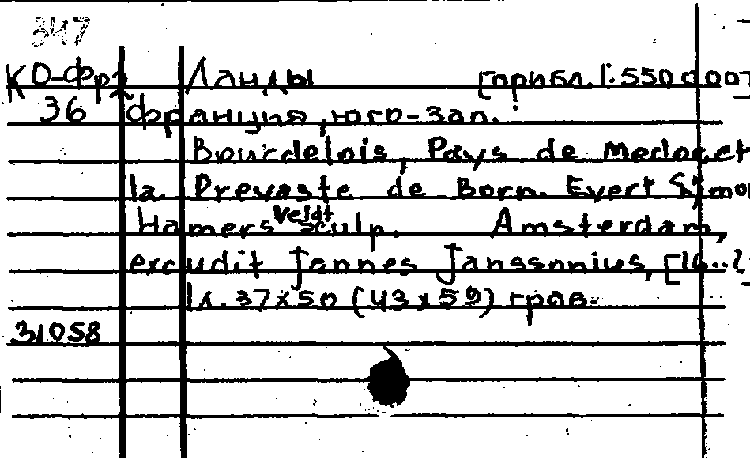 347
КО-Фр2 Ланды [прибл. 1:550000]
36 Франция, юго-зап.
Bourdelois, Pays de Medoc et
la Prevoste de Born. Evert Symon
Hamers Veldt sculp. Amsterdam,
excudit Jonnes Janssonius, [16..?]
1л. 37x50 (43x59) грав.
31058